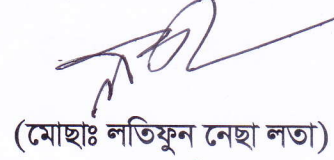 (মোছাঃ লতিফুন নেছা লতা)